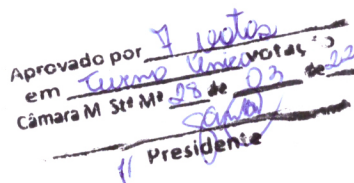 Aprovado por 7 votos
em Turno Único votação
Câmara M Stª Mª 28 de 03 de 22
Presidente